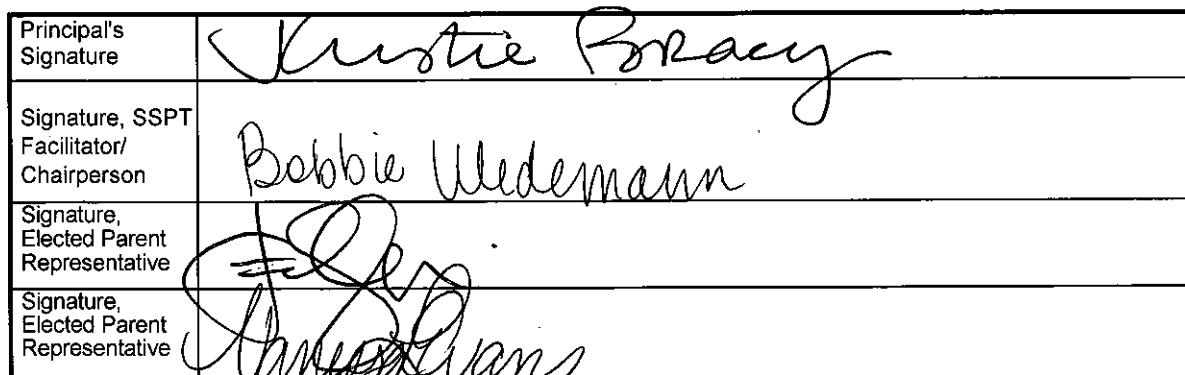 Principal's
Signature
Kristie Bracy
Signature, SSPT
Facilitator/
Chairperson
Bobbie Wedemann
Signature,
Elected Parent
Representative
Signature,
Elected Parent
Representative
Evans